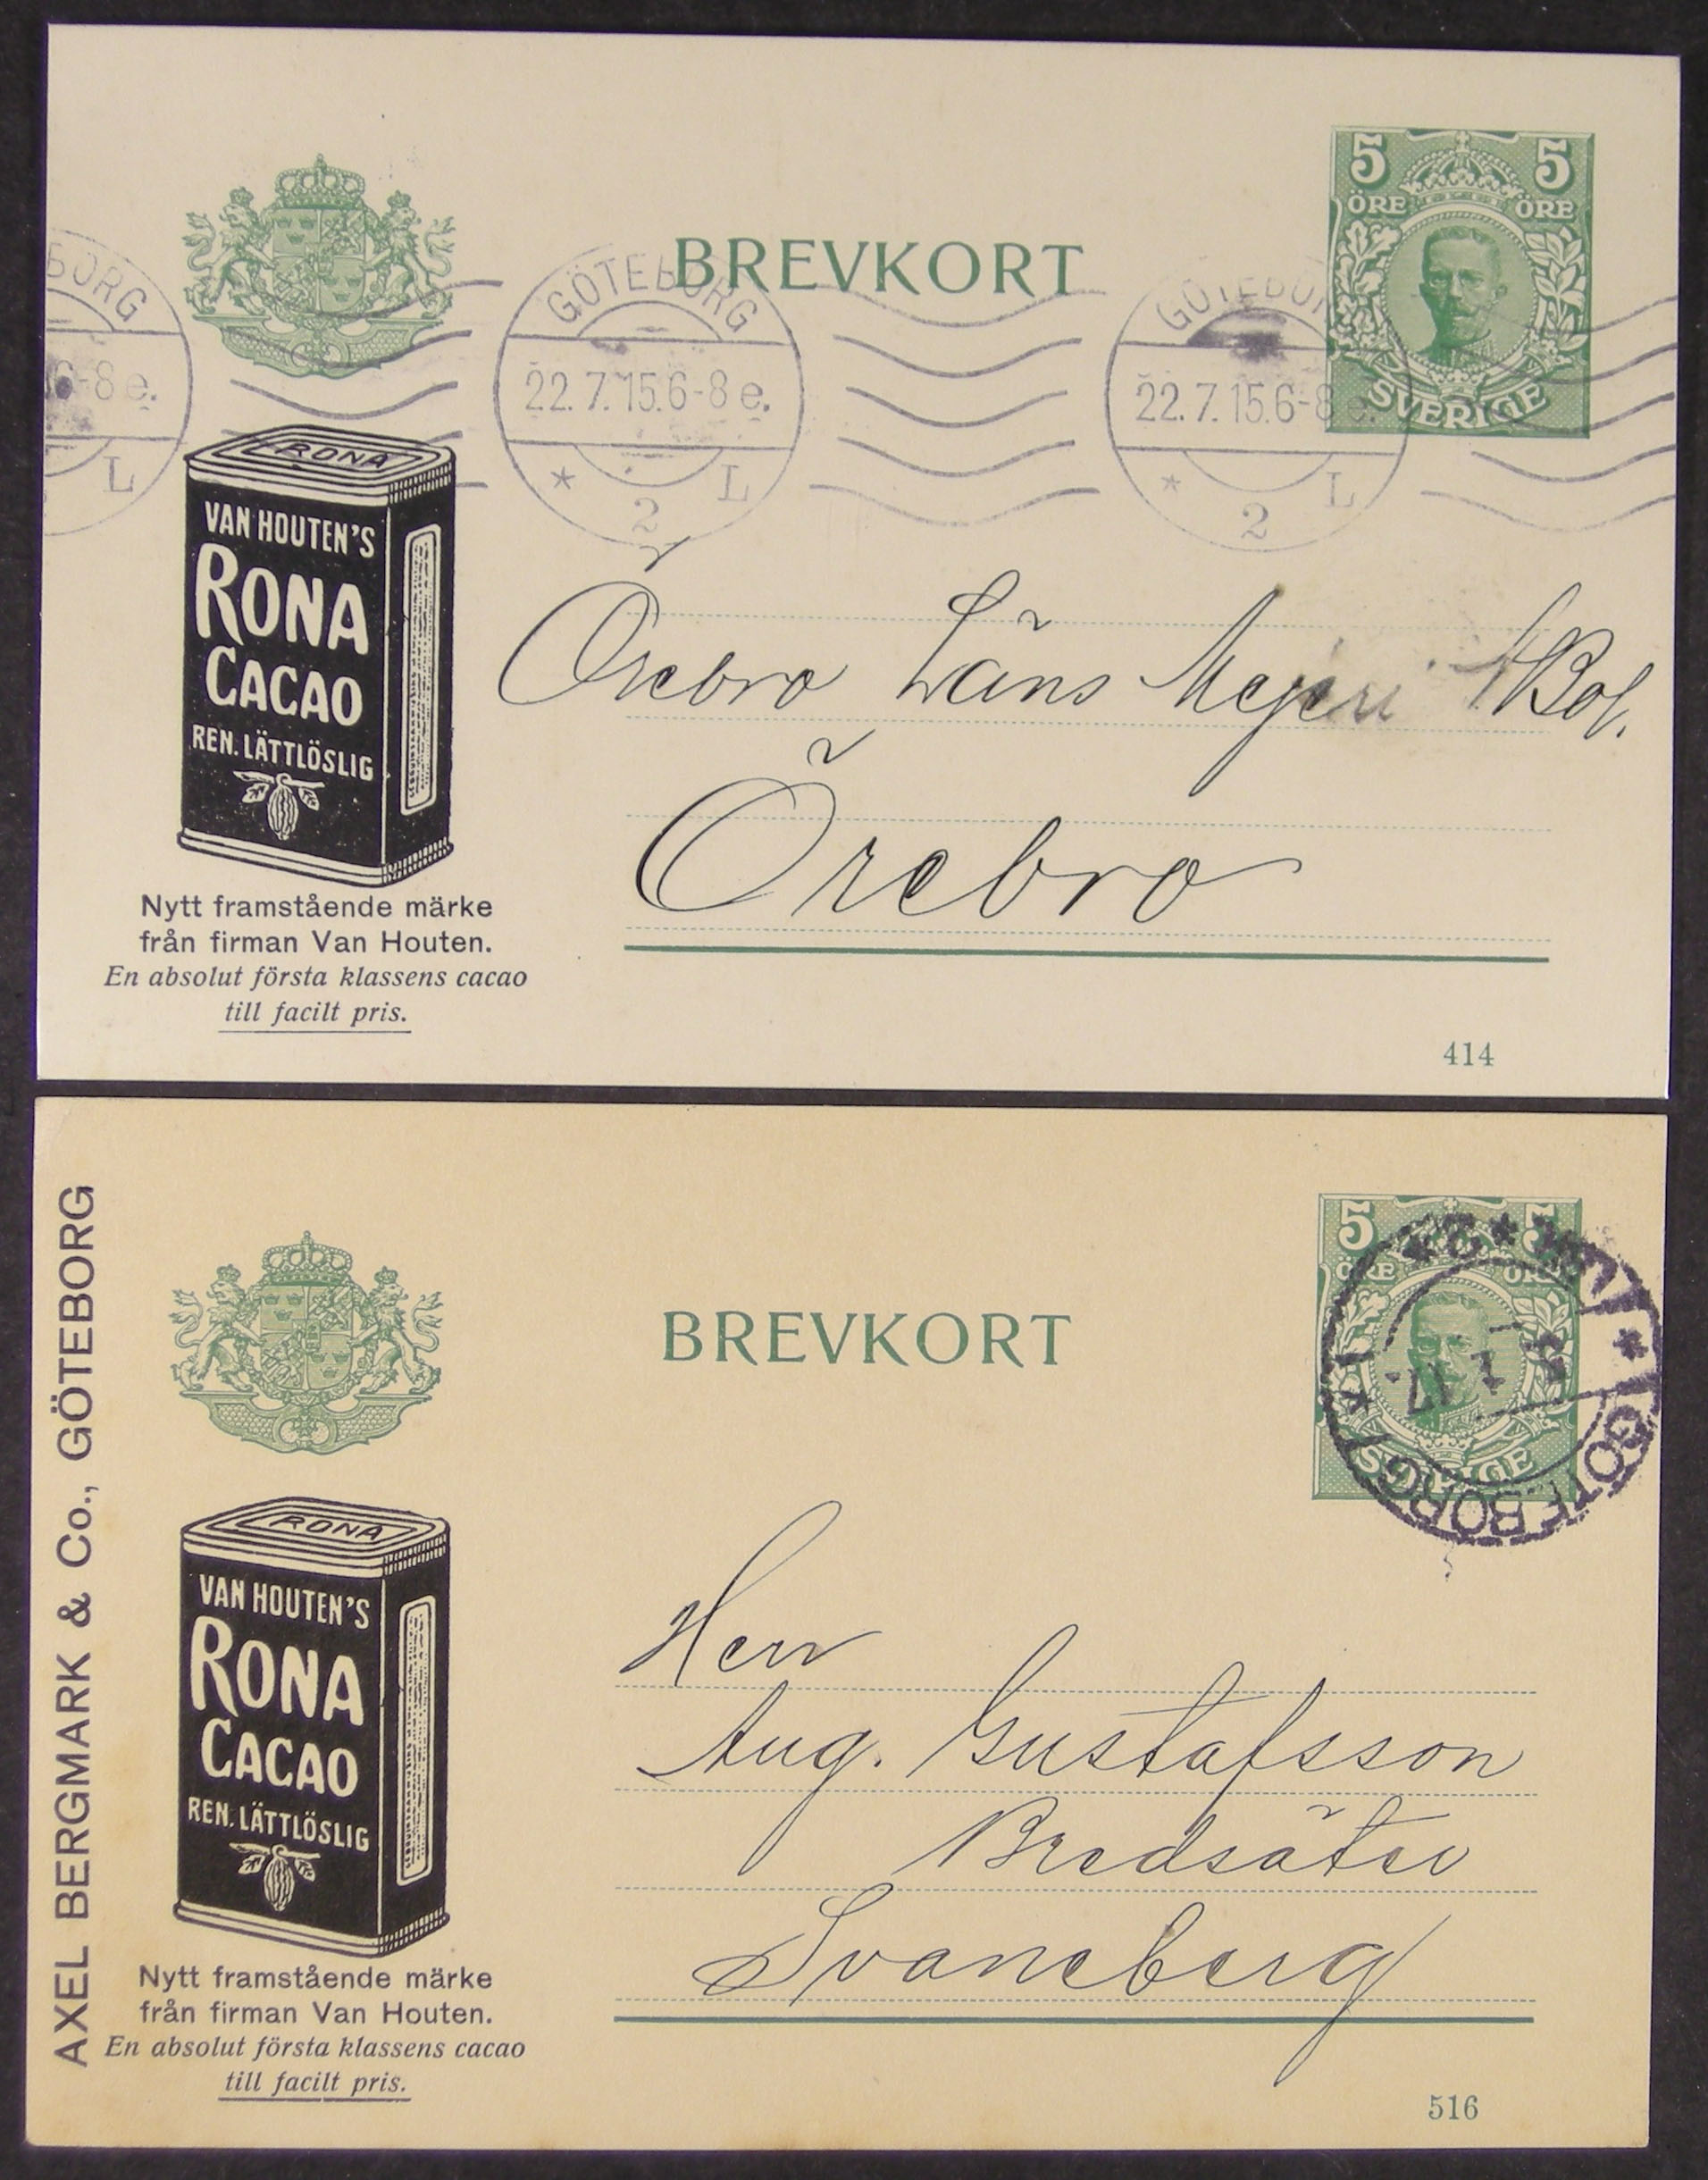 BREVKORT
5 5
ÖRE ÖRE
SVERIGE
BORG
6-8 e.
L
GÖTEBORG
22.7.15.6-8 e.
* L
2
GÖTEBOR
22.7.15.6-8 e.
* L
2
RONA
VAN HOUTEN'S
RONA
CACAO
REN. LÄTTLÖSLIG
Nytt framstående märke
från firman Van Houten.
En absolut första klassens cacao
till facilt pris.
Örebro Läns Mejeri Bol.
Örebro
414
AXEL BERGMARK & Co., GÖTEBORG
BREVKORT
5 5
ÖRE ÖRE
SVERIGE
GÖTEBORG 1
RONA
VAN HOUTEN'S
RONA
CACAO
REN. LÄTTLÖSLIG
Nytt framstående märke
från firman Van Houten.
En absolut första klassens cacao
till facilt pris.
Herr
Aug. Gustafsson
Bredsäter
Svaneberg
516